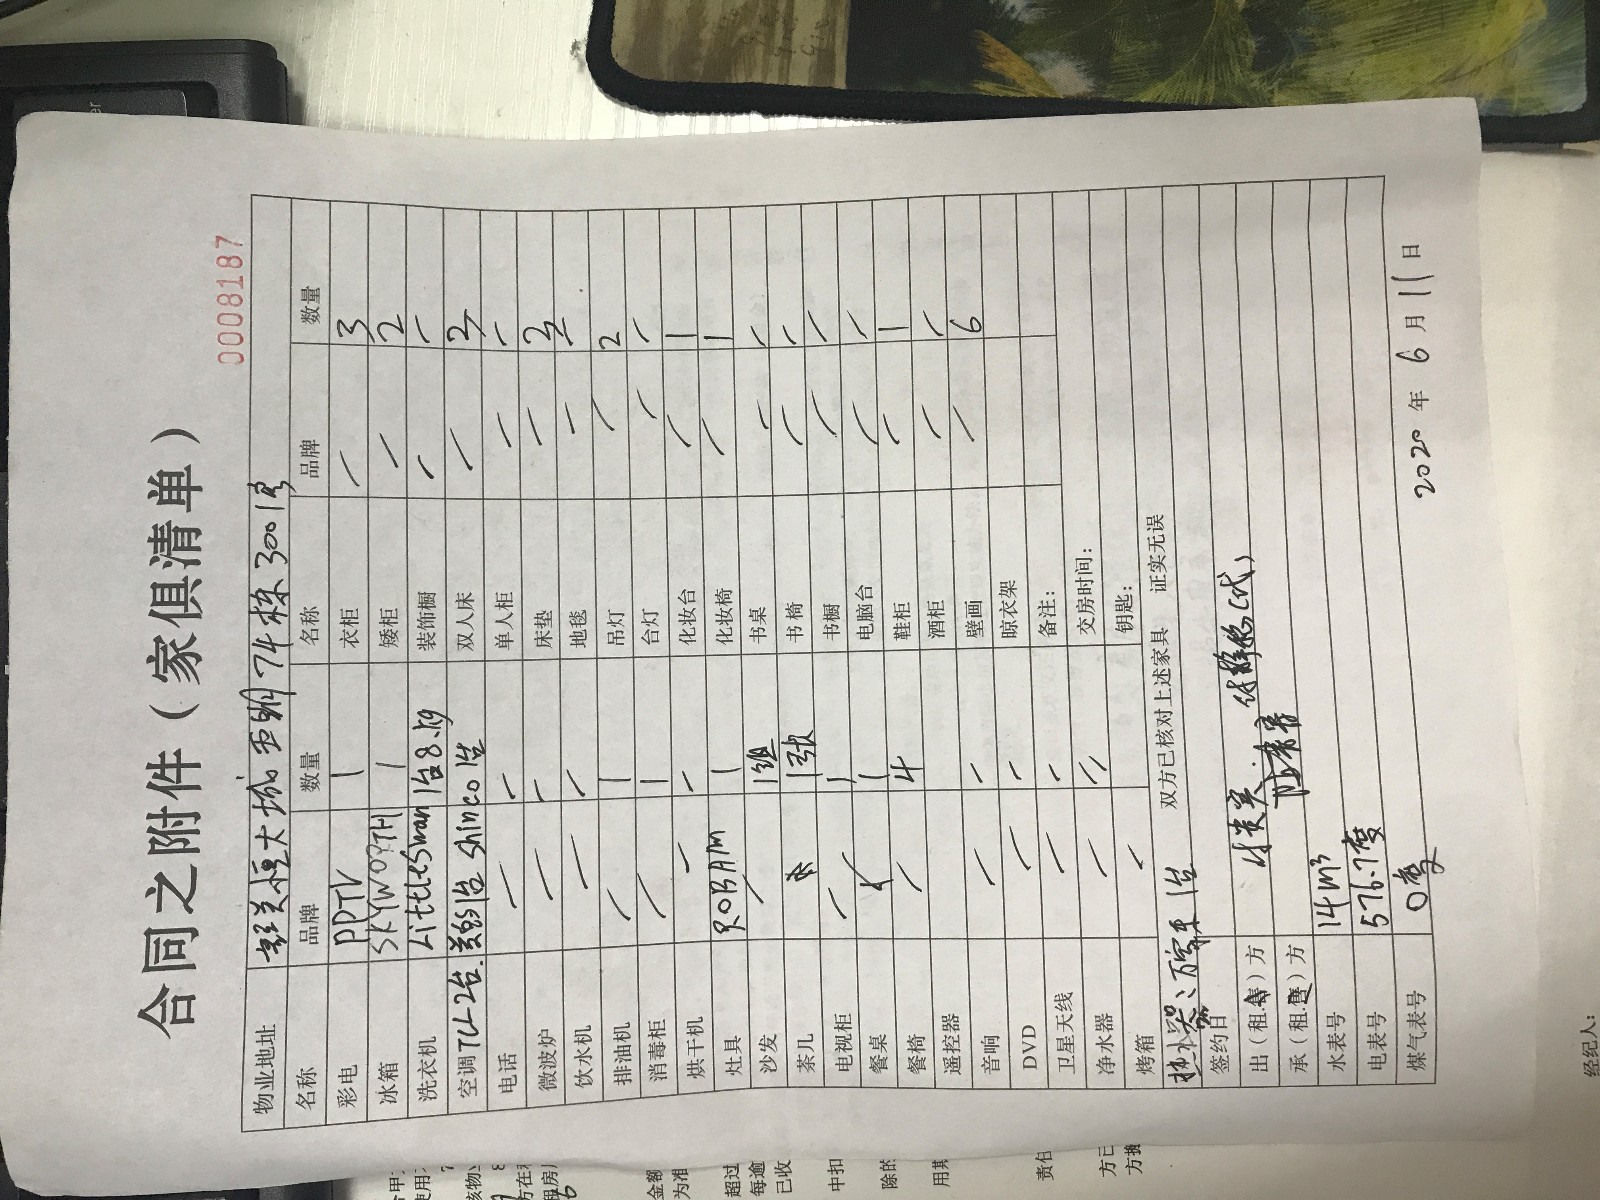 合同之附件（家俱清单）
0008187
物业地址 恒大城 74栋3001房
名称 品牌 数量 名称 品牌 数量
彩电 PPTV 1 衣柜 / 3
冰箱 SKYWORTH 1 矮柜 / 2
洗衣机 LittleSwan 1台8.kg 装饰橱 / /
空调 TCL2台. 美的1台 Shinco 1台 双人床 / 2
电话 / / 单人柜 / /
微波炉 / / 床垫 / 2
饮水机 / / 地毯 / /
排油机 / 1 吊灯 / 2
消毒柜 / 1 台灯 / /
烘干机 / / 化妆台 / 1
灶具 ROBAM 1 化妆椅 / 1
沙发 / 1组 书桌 / /
茶几 1张 书椅 / /
电视柜 / 1 书橱 / /
餐桌 1 电脑台 / /
餐椅 / 4 鞋柜 / 1
遥控器 酒柜 / /
音响 / / 壁画 / 6
DVD / / 晾衣架
卫星天线 / / 备注：
净水器 / // 交房时间：
烤箱 / 钥匙：
热水器：万家乐 1台 双方已核对上述家具 证实无误
签约日
出（租.售）方
承（租.售）方
水表号 14m³
电表号 576.7度
煤气表号 0度
2020 年 6 月 11 日
经纪人：